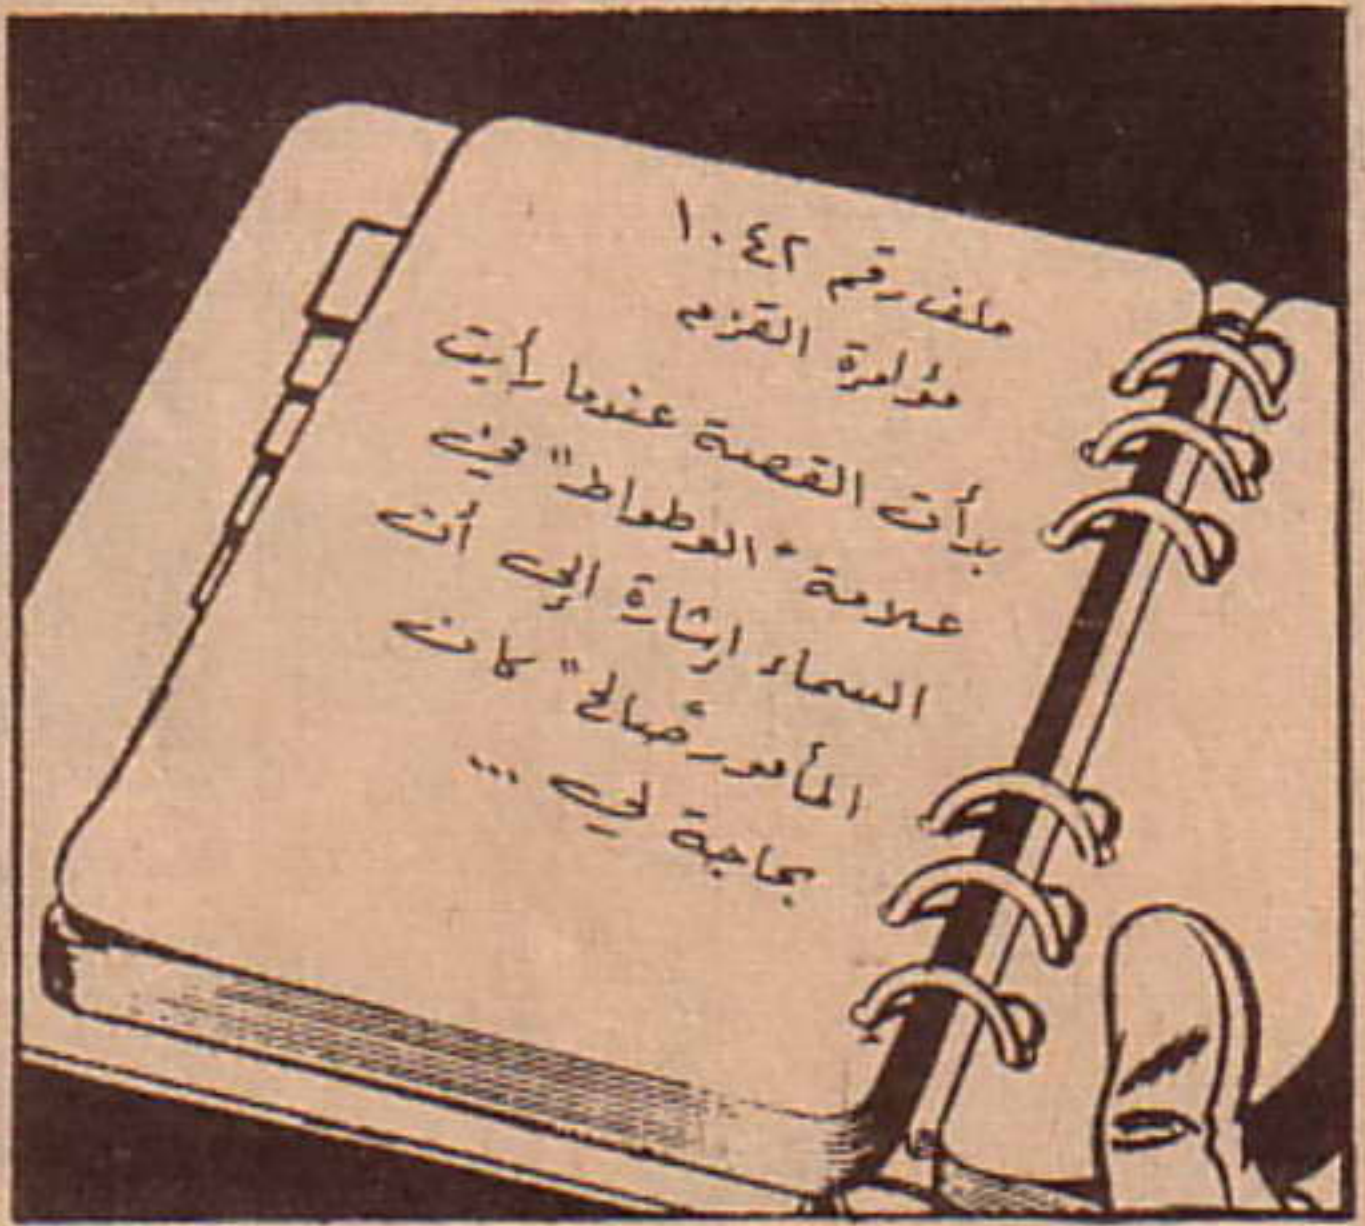 ملف رقم ١٠٤٢
مؤامرة القزم
بدأت القصة عندما رأيت
علامة "الوطواط" في
السماء إشارة إلى أن
المأمور "صالح" كان
بحاجة لي ...